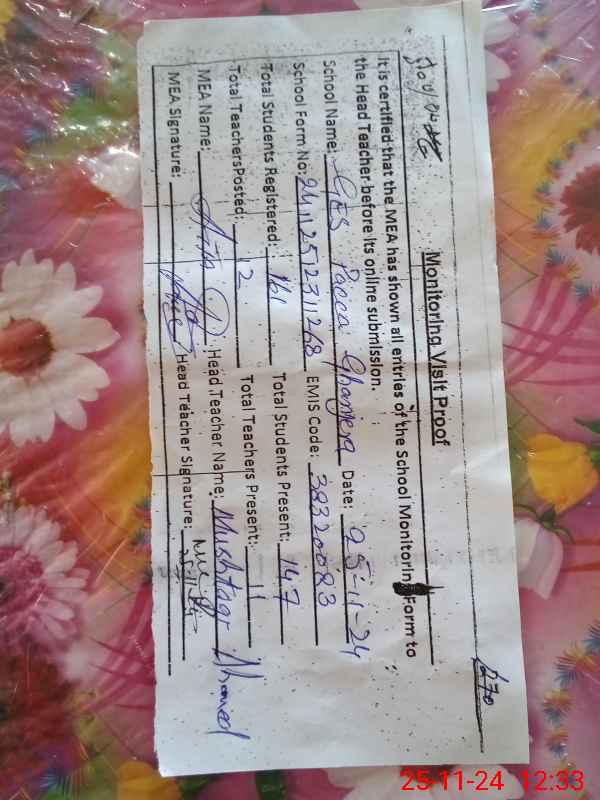 Monitoring Visit Proof
It is certified that the MEA has shown all entries of the School Monitoring Form to
the Head Teacher before its online submission.
School Name: GES Pacca Ghanjera Date: 25-11-24
School Form No: EMIS Code: 38320083
Total Students Registered: 161 Total Students Present: 147
Total TeachersPosted: 2 Total Teachers Present: 11
MEA Name: Head Teacher Name: Mushtaqr Ahmed
MEA Signature: Head Teacher Signature: 25.11.24
25-11-24 12:33